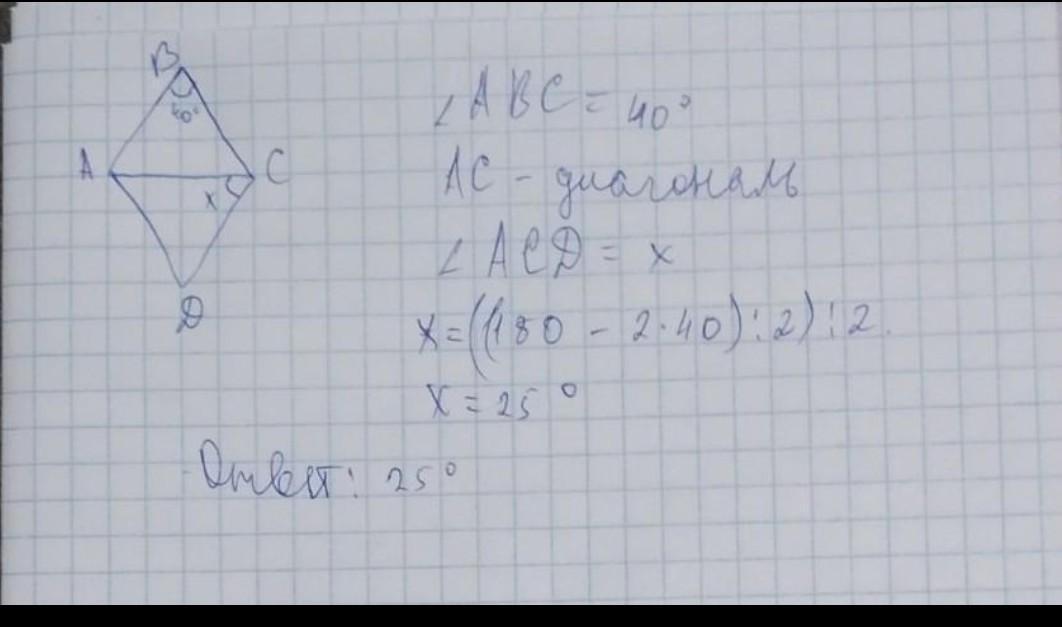 B
40°
A
C
x
D
∠ABC = 40°
AC - диагональ
∠ACD = x
x=((180 - 2·40):2):2.
x = 25°
Ответ: 25°